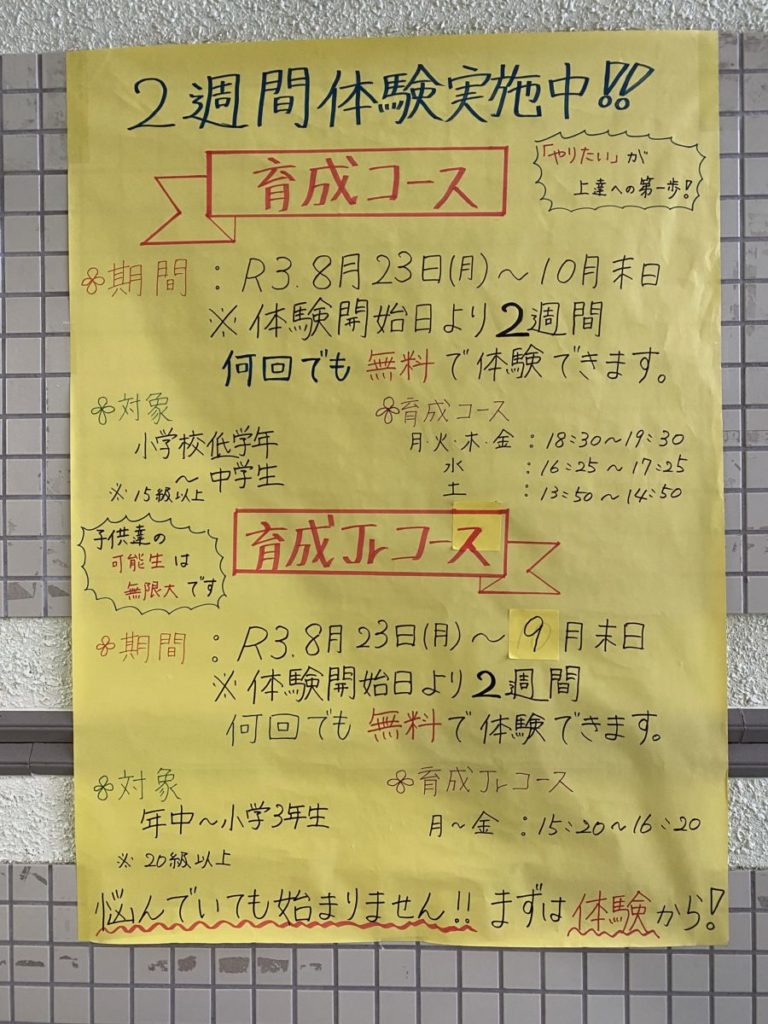 2週間体験実施中!!
育成コース
「やりたい」が
上達への第一歩!
期間：R3.8月23日(月)～10月末日
※体験開始日より2週間
何回でも無料で体験できます。
対象
小学校低学年
～中学生
※15級以上
育成コース
月・火・木・金：18:30～19:30
水：16:25～17:25
土：13:50～14:50
子供達の
可能生は
無限大です
育成Jrコース
期間：R3.8月23日(月)～9月末日
※体験開始日より2週間
何回でも無料で体験できます。
対象
年中～小学3年生
※20級以上
育成Jrコース
月～金：15:20～16:20
悩んでいても始まりません!! まずは体験から!